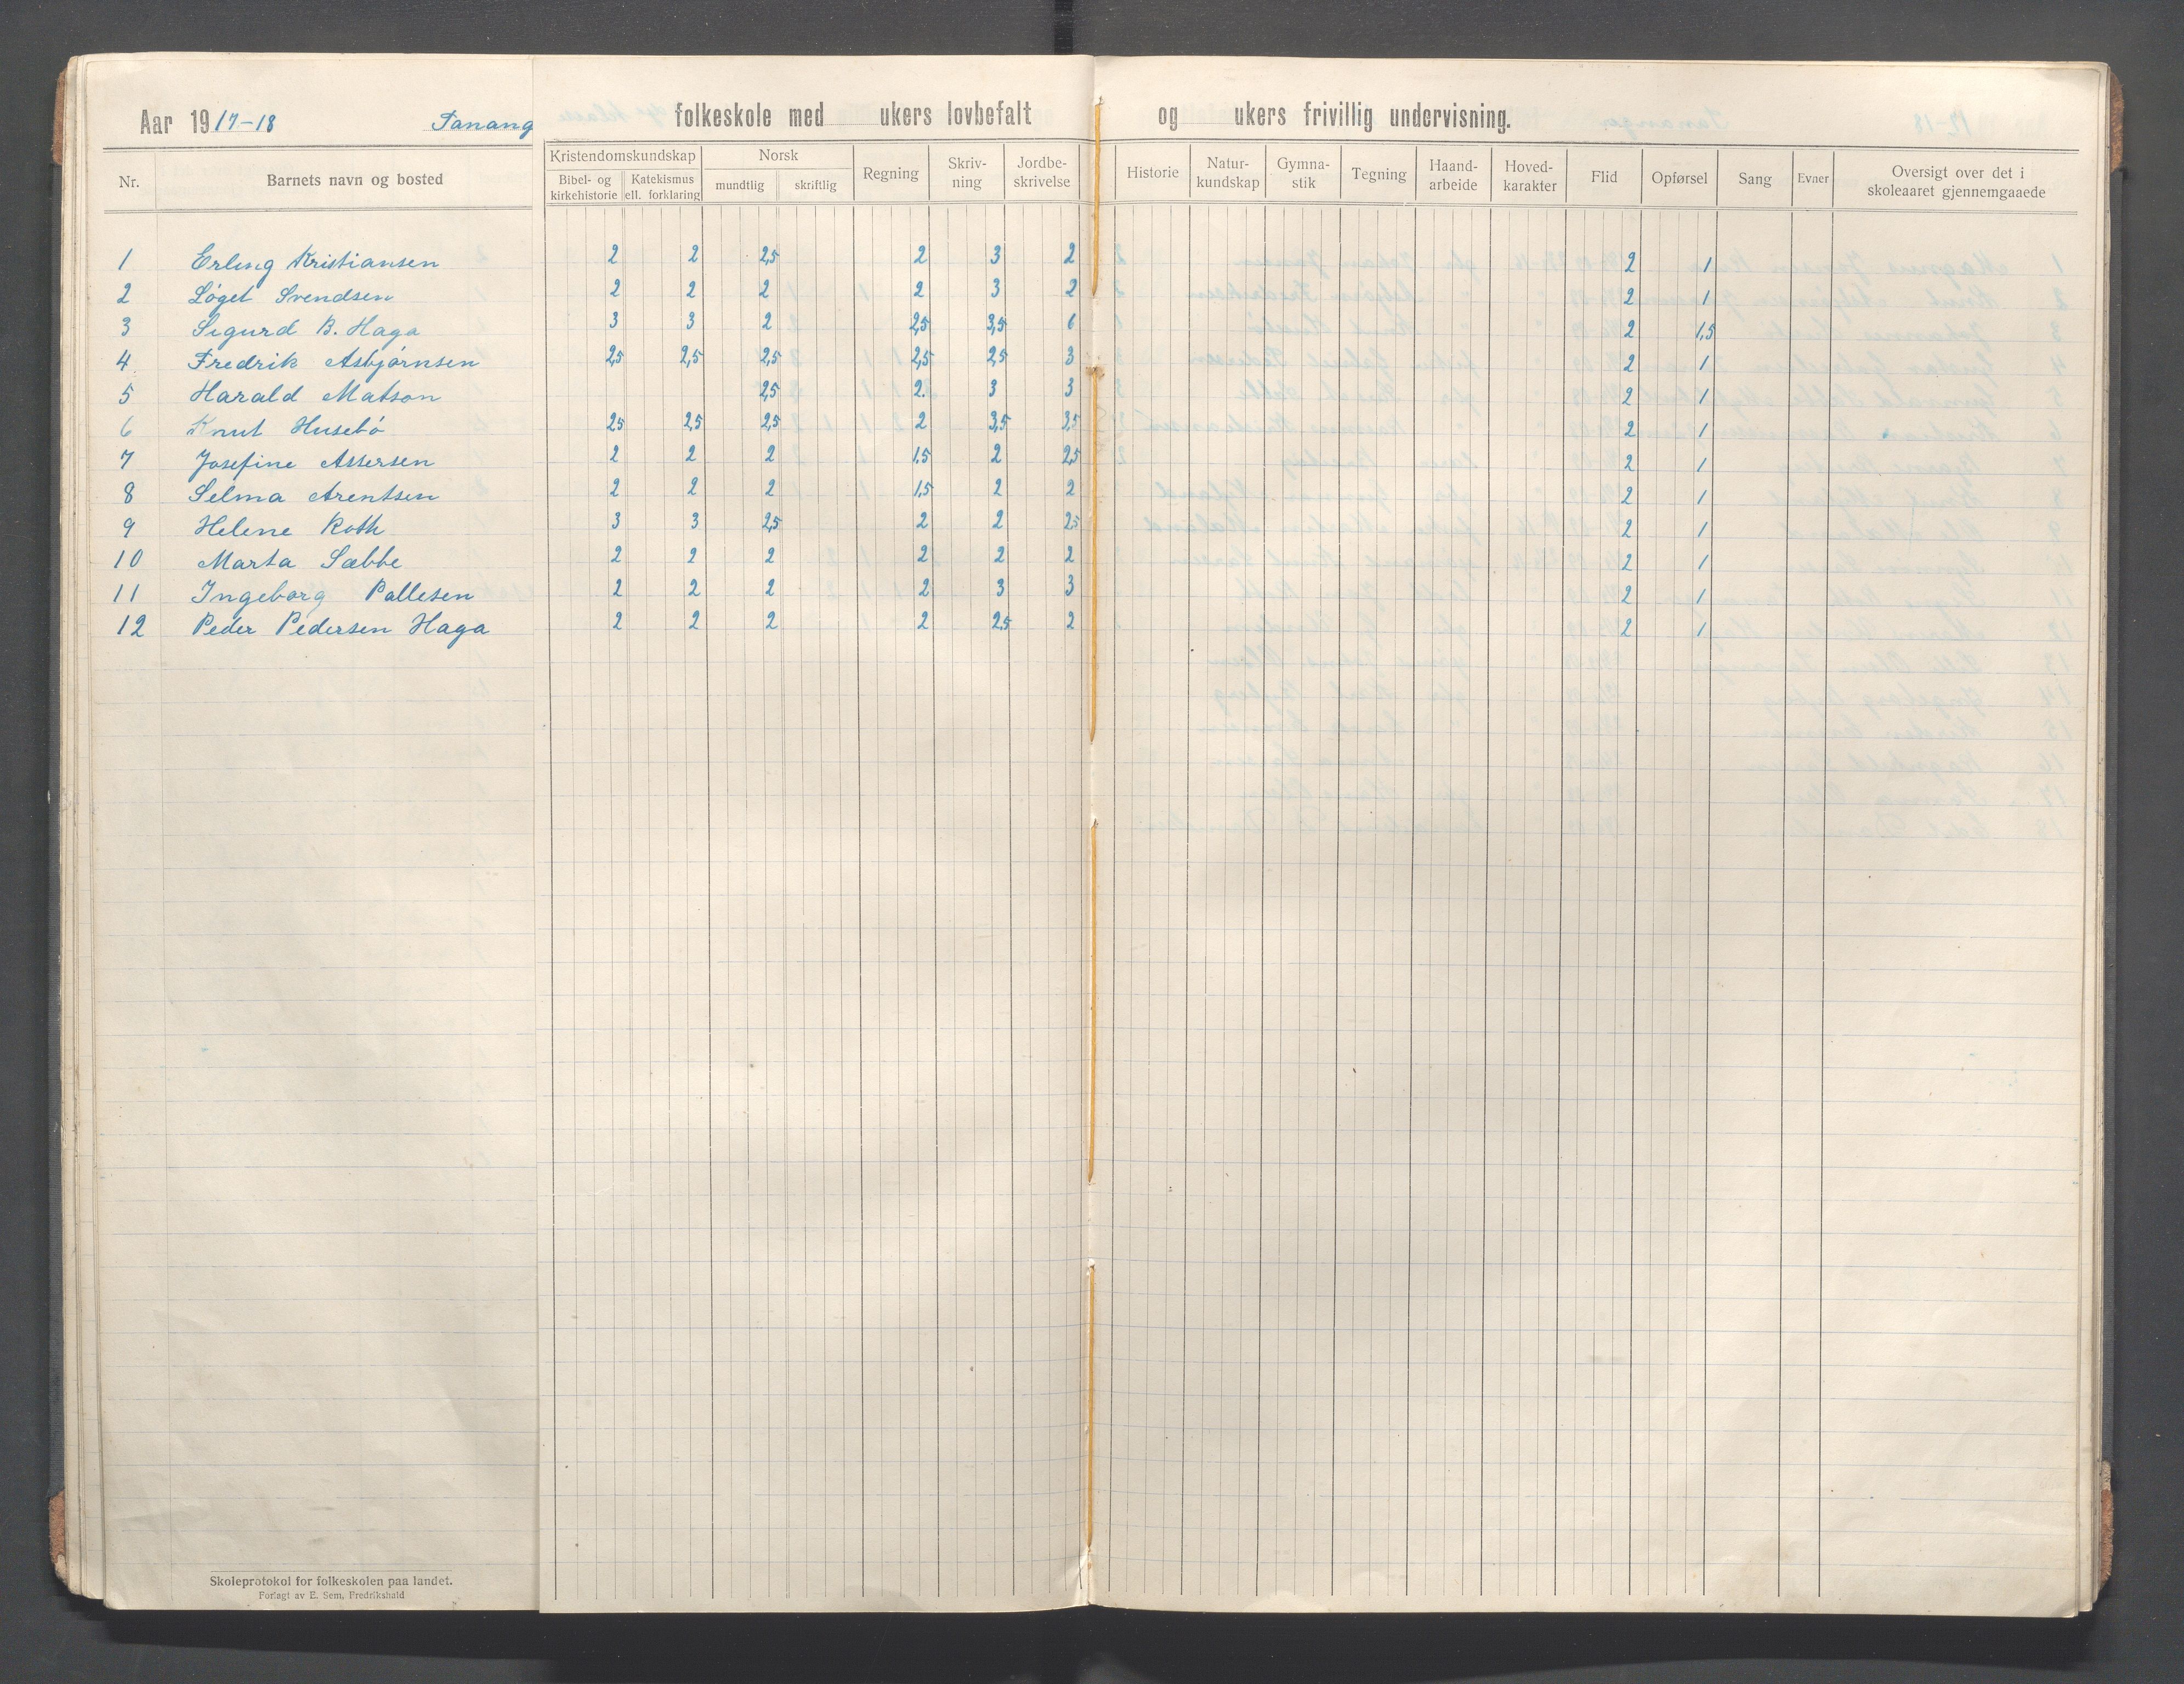 Aar 1917-18 Tanang folkeskole med ukers lovbefalt og ukers frivillig undervisning.
Nr. Barnets navn og bosted Kristendomskundskap Norsk Regning Skriv-ning Jordbe-skrivelse Historie Natur-kundskap Gymna-stik Tegning Haand-arbeide Hoved-karakter Flid Opførsel Sang Evner Oversigt over det i skoleaaret gjennemgaaede
Bibel- og kirkehistorie Katekismus ell. forklaring mundtlig skriftlig
1 Erling Kristiansen 2 2 2,5 2 3 2 2 1
2 Løget Svendsen 2 2 2 2 3 2 2 1
3 Sigurd B. Haga 3 3 2 2,5 3,5 6 2 1,5
4 Fredrik Asbjørnsen 2,5 2,5 2,5 2,5 2,5 3 2 1
5 Harald Matson 2,5 2. 3 3 2 1
6 Knut Husebø 2,5 2,5 2,5 2 3,5 3,5 2 1
7 Josefine Assersen 2 2 2 1,5 2 2,5 2 1
8 Selma Arentsen 2 2 2 1,5 2 2 2 1
9 Helene Roth 3 3 2,5 2 2 2,5 2 1
10 Marta Sæbbe 2 2 2 2 2 2 2 1
11 Ingeborg Pallesen 2 2 2 2 3 3 2 1
12 Peder Pedersen Haga 2 2 2 2 2,5 2 2 1
Skoleprotokol for folkeskolen paa landet.
Forlagt av E. Sem, Fredrikshald